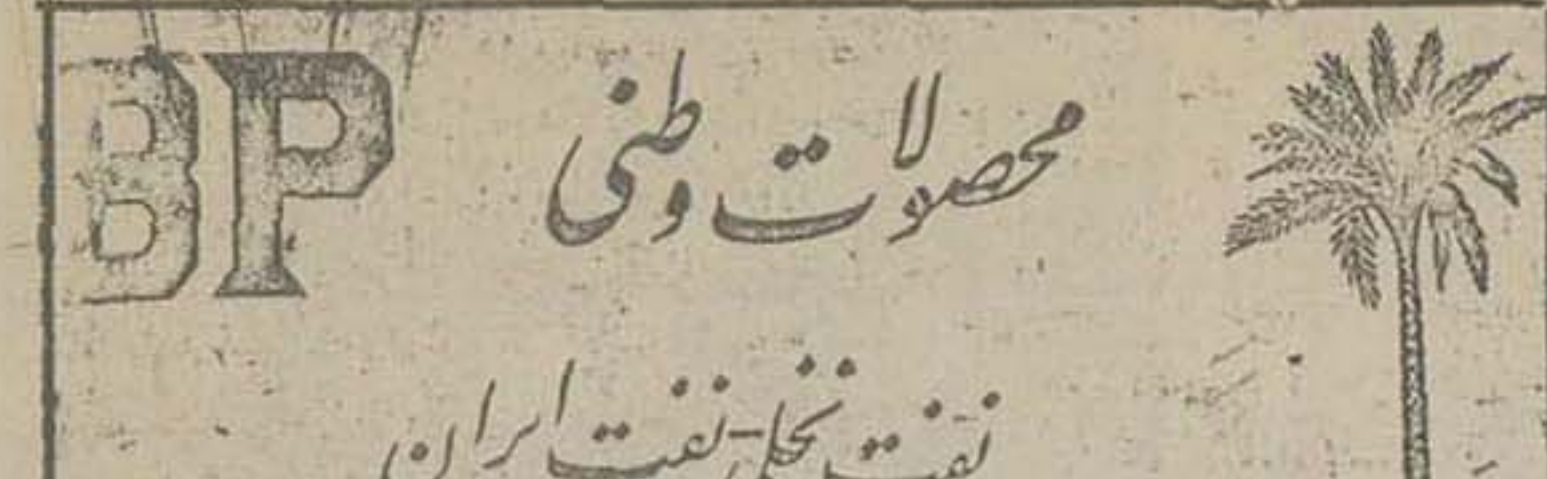 BP
محصولات وطنی
نفت نخل - نفت ایران